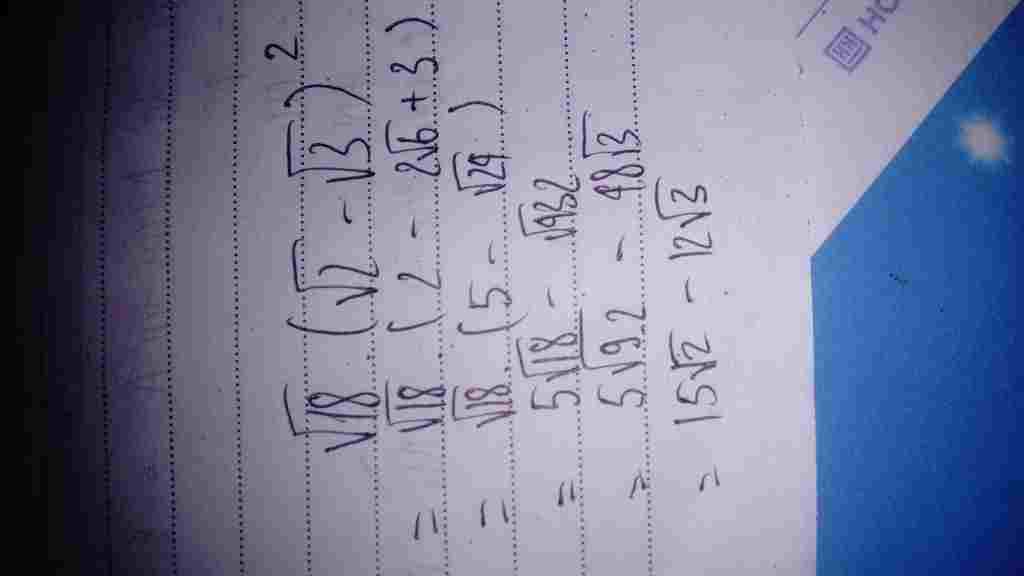 √18 (√2 - √3)²
= √18 (2 - 2√6 + 3)
= √18 (5 - √24)
= 5√18 - √432
= 5√9.2 - 48√3
= 15√2 - 12√3